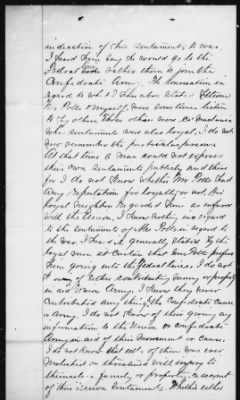 indication of their sentiments to was.
I heard him say he would go to the
Federal lines rather than to join the
Confederate Army. The conversation in
regard to which I have above stated
Mr Polk & myself, were sometimes listen
to by others. There others were
who sentiments was also loyal. I do not
now remember the particular persons
At that time a man could not express
their own sentiments publicly and there
for I do not know whether Mr Polk had
any reputation for loyalty or not. His
loyal neighbor regarded him as
with the Union. I know nothing in regard
to the sentiments of Mrs Polk in regard to
the war. I heard it generally stated by the
loyal men at
him going into the Federal lines. I do not
know of either contributing money or property
in aid Union Army. I know they never
contributed any thing to the Confederate cause
or Army. I do not know of their giving any
information to the Union or Confederate
Army in aid of their movement or cause.
I do not know that either of them was ever
molested or threatened with injury to
themselves, family, or property, on account
of their Union sentiments. Whether either